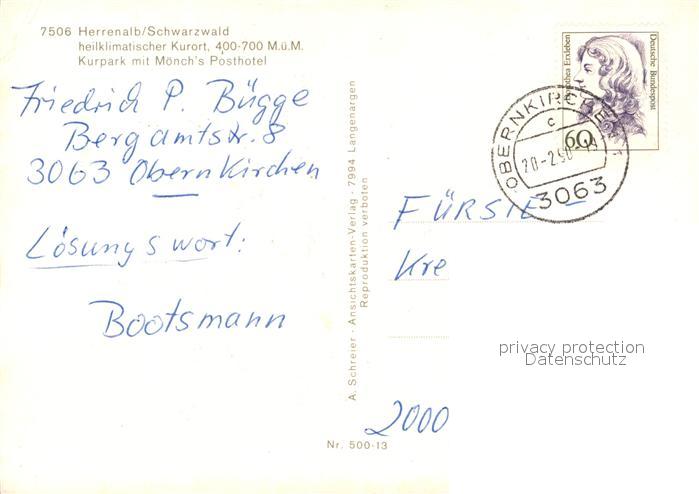 7506 Herrenalb/Schwarzwald
heilklimatischer Kurort, 400-700 M.ü.M.
Kurpark mit Mönch's Posthotel
Friedrich P. Bügge
Bergamtstr. 8
3063 Obernkirchen
Lösungswort:
Bootsmann
A. Schreier · Ansichtskarten-Verlag · 7994 Langenargen
Reproduktion verboten
Nr. 500-13
Deutsche Bundespost
60
OBERNKIRCHEN
c
20.-2.90
3063
FÜRSTE
Kre
2000
privacy protection
Datenschutz